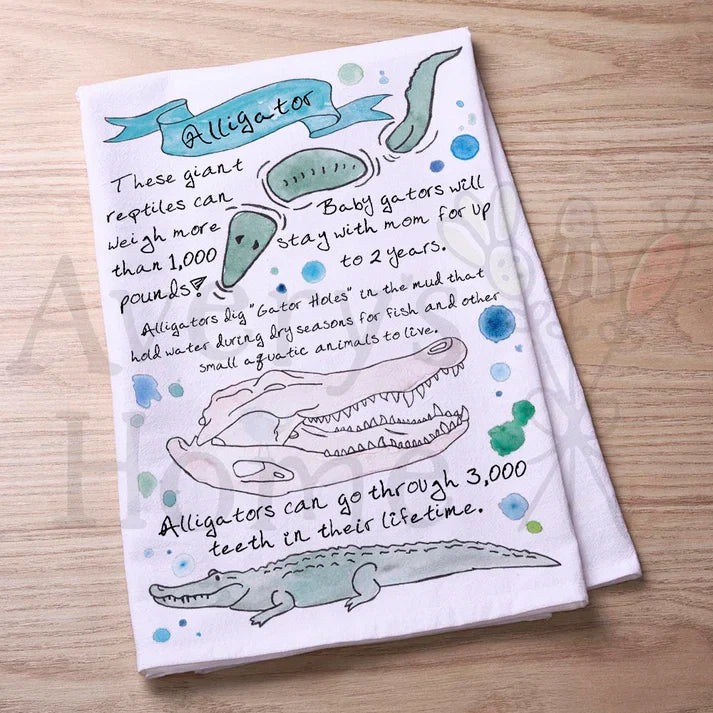 Alligator
These giant
reptiles can
weigh more
than 1,000
pounds!
Baby gators will
stay with mom for up
to 2 years.
Alligators dig "Gator Holes" in the mud that
hold water during dry seasons for fish and other
small aquatic animals to live.
Alligators can go through 3,000
teeth in their lifetime.
Avery's
Home